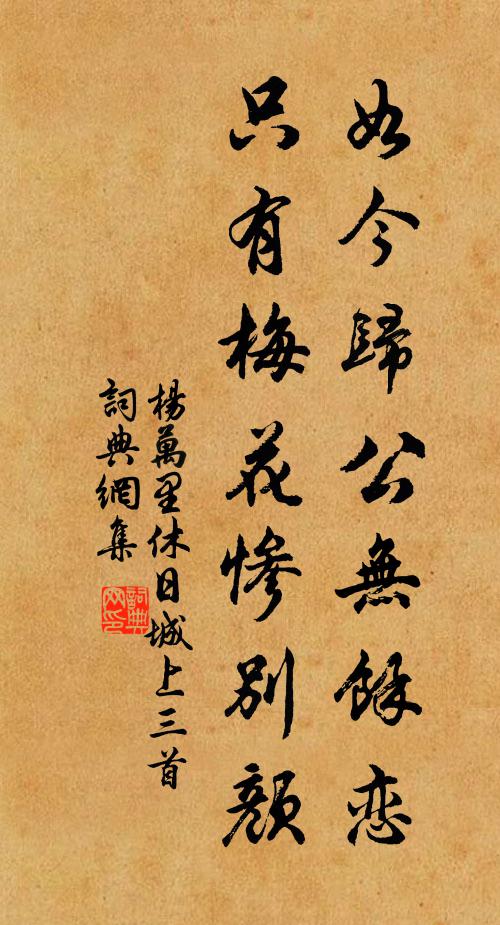 如今歸公無餘恋
只有梅花惨别顏
楊萬里休日城上三首
詞典網集
詞典网印